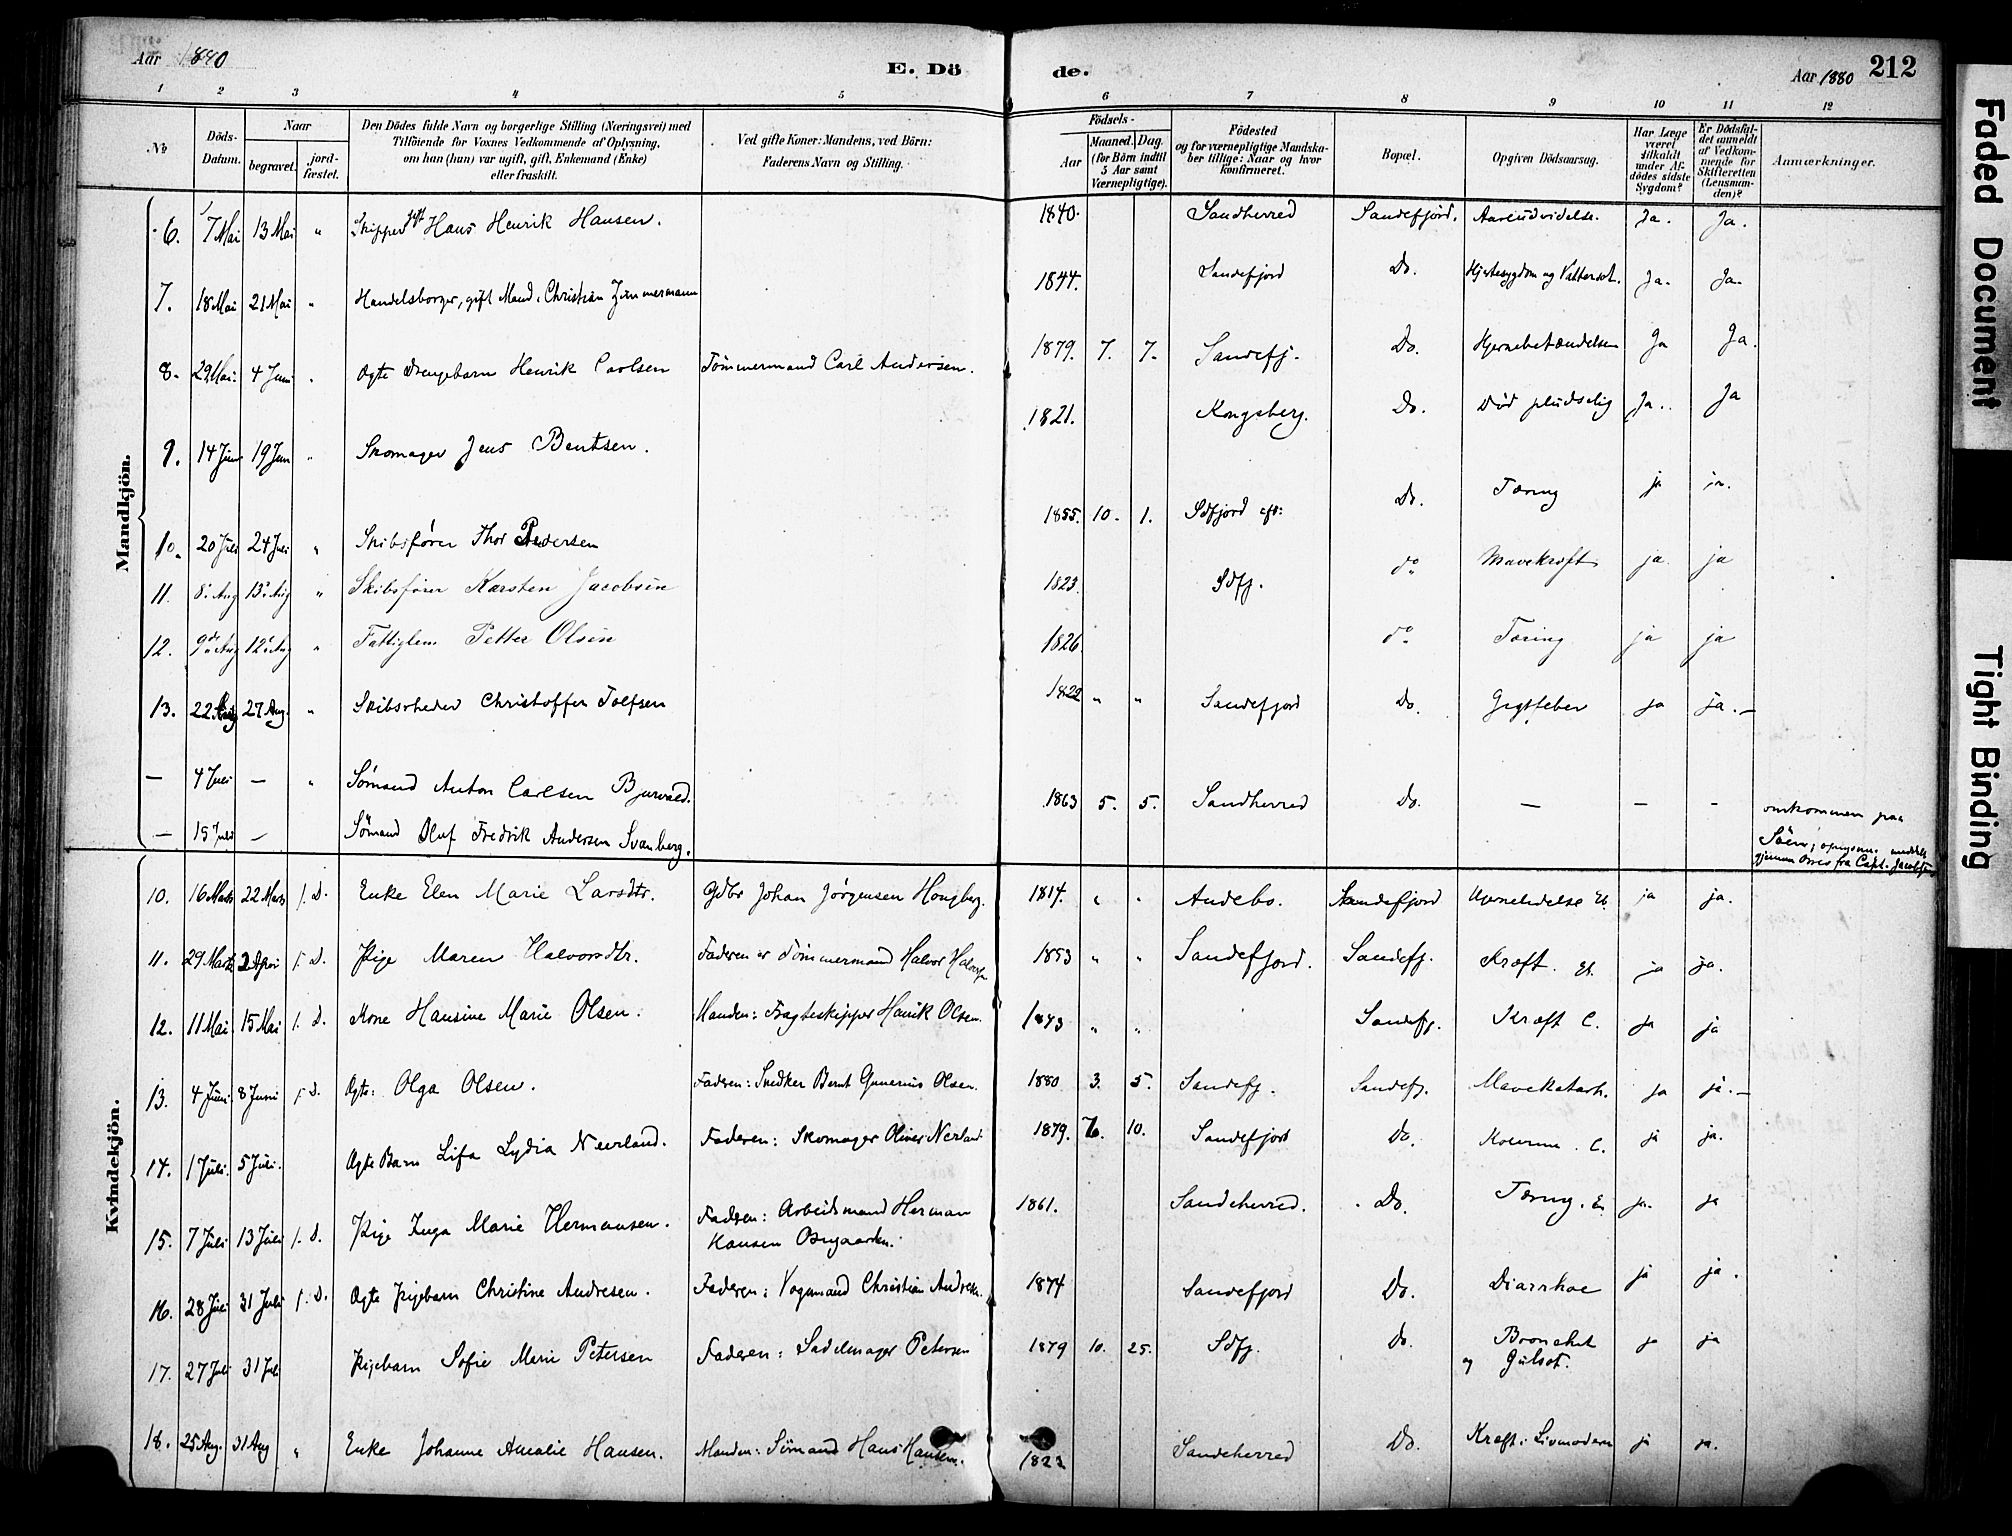 Aar 1880
E. Döde.
Aar 1880 212
1 2 3 4 5 6 7 8 9 10 11 12
No
Döds-Datum.
Naar
begravet.
jord-fæstet.
Den Dödes fulde Navn og borgerlige Stilling (Næringsvei) med
Tilföiende for Voxnes Vedkommende af Oplysning,
om han (hun) var ugift, gift, Enkemand (Enke)
eller fraskilt.
Ved gifte Koner: Mandens, ved Börn:
Faderens Navn og Stilling.
Födsels-
Aar
Maaned. Dag.
(for Börn indtil
5 Aar samt
Værnepligtige).
Födested
og for værnepligtige Mandska-
ber tillige: Naar og hvor
konfirmeret.
Bopæl.
Opgiven Dödsaarsag.
Har Læge
været
tilkaldt
under Af-
dödes sidste
Sygdom?
Er Dödsfal-
det anmeldt
af Vedkom-
mende for
Skifteretten
(Lensman-
den)?
Anmærkninger.
Mandkjön.
6. 7 Mai 13 Mai " Skipper gift Hans Henrik Hansen. 1840. Sandherred Sandefjord. Aareudvidelse. Ja. Ja.
7. 18 Mai 21 Mai " Handelsborger, gift Mand, Christian Zimmermann 1844. Sandefjord Do. Hjertesygdom og Vattersot. Ja. Ja.
8. 29 Mai. 4 Juni " Ægte Drengebarn Henrik Carlsen Tömmermand Carl Andersen. 1879. 7. 7. Sandefj. Do. Hjernebetændelse Ja Ja.
9. 14 Juni 19 Juni " Skomager Jens Bentsen. 1821. Kongsberg. Do. Död pludselig Ja. Ja
10. 20 Juli 24 Juli " Skibsförer Thor Pedersen 1855. 10. 1. Sdfjord Do. Tæring ja ja.
11. 8 Aug 13 Aug " Skibsförer Karsten Jacobsen 1823. Sdfj. do Mavekræft ja ja
12. 9de Aug 12 Aug " Fattiglem Petter Olsen 1826 do Tæring ja ja
13. 22 Aug 27 Aug. " Skibsrheder Christoffer Tolfsen 1822 " " Sandefjord Do. Gigtfeber ja ja.
— 4 Juli — " Sömand Anton Carlsen Bjurvald. 1863 5. 5. Sandherred Do. — — — omkommen paa
— 15 Juli — Sömand Oluf Fredrik Andersen Svanberg. Söen,
gjennem fra Capt. Jacobsen
Kvindekjön.
10. 16 Marts 22 Marts f. D. Enke Elen Marie Larsdtr. Gdbr Johan Jörgensen Hougberg. 1817. " " Andebo. Sandefjord ja ja.
11. 29 Marts 2 April f. D. Pige Maren Halvorsdtr. Faderen er Tömmermand Halvor Halvors. 1853 " " Sandefjord. Sandefj. Kræft. ja ja.
12. 11 Mai. 15 Mai f. D. Kone Hansine Marie Olsen. Manden: Fragteskipper Henrik Olsen. 1843 " " Sandefj. Kræft C. ja ja
13. 4 Juni. 8 Juni f. D. Ægte: Olga Olsen. Faderen: Snedker Bernt Gunerius Olsen. 1880 3. 5. Sandefj. Sandefj. Mavekatarh. ja ja.
14. 1 Juli. 5 Juli. Ægte Barn Lifa Lydia Neerland. Faderen: Skomager Oliver Nerland. 1879. 7. 10. Sandefjord Do. C. ja ja.
15. 7 Juli 13 Juli f. D. Pige Inga Marie Hermansen. Faderen: Arbeidsmand Herman
Hansen 1861. Sandeherred. Do. Tæring. ja. ja
16. 28 Juli 31 Juli f. D. Ægte Pigebarn Christine Andresen. Faderen: Vognmand Christian Andresen. 1874 Sandefjord Do. Diarrhoe ja ja.
17. 27 Juli 31 Juli Pigebarn Sofie Marie Petersen Faderen: Sadelmager Petersen 1879 10. 25. Sdfj. Do. Bronchit
og Gulsot. ja ja
18. 25 Aug. 31 Aug " Enke Johanne Amalie Hansen. Manden: Sömand Hans Hansen. 1822 Sandeherred Do. Kræft i Livmoderen ja ja.
Faded Document
Tight Binding